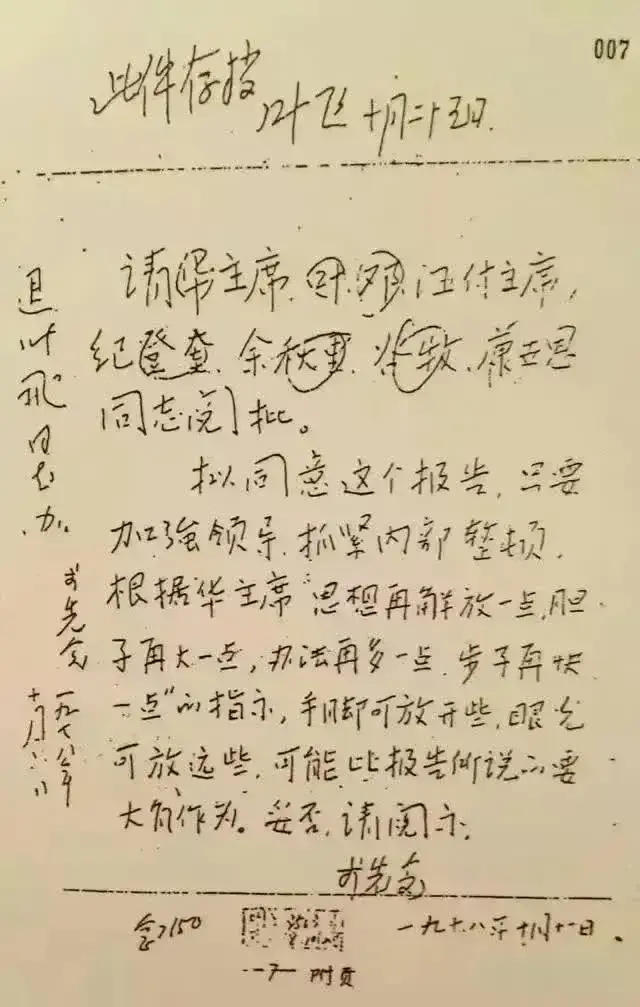 007
此件存档
叶飞 十月二十五日.
请华主席、叶、邓、汪付主席,
纪登奎、余秋里、谷牧、康世恩
同志阅批。
拟同意这个报告,只要
加强领导、抓紧内部整顿,
根据华主席“思想再解放一点,胆
子再大一点,办法再多一点,步子再快
一点”的指示,手脚可放开些,眼光
可放远些,可能比报告所说的要
大有作为。妥否,请阅示.
李先念
退叶飞同志办.
李先念
一九七八年
十月
一九七八年十月十一日.
附页